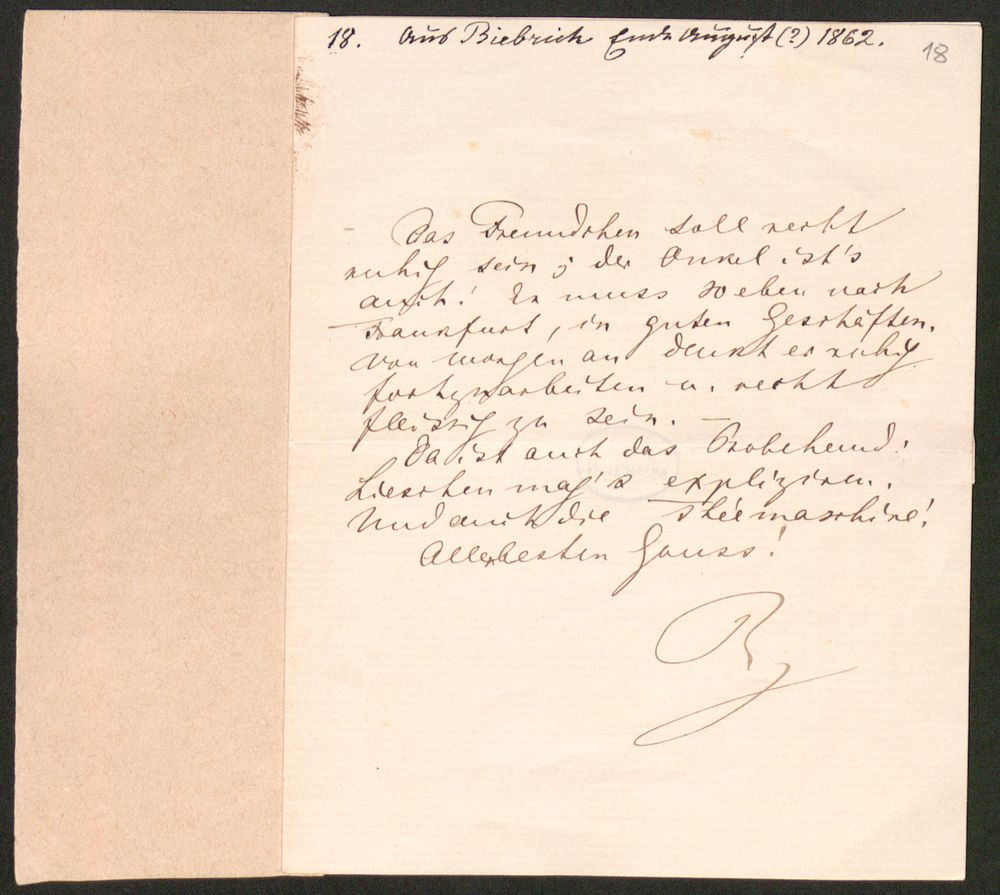 18. Aus Biebrich Ende August (?) 1862.
18
Das Freundchen soll recht
ruhig sein; der Onkel ist's
auch! Er muss so eben nach
Frankfurt, in guten Geschäften.
Von morgen an denkt er ruhig
fortzuarbeiten u. recht
fleissig zu sein. –
Da ist auch das Probehemd:
Lieschen mag's expliziren.
Und auch die Theemaschine!
Allerbesten Gruss!
R